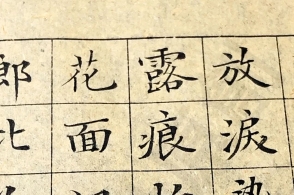 放淚
露痕
花面
郎